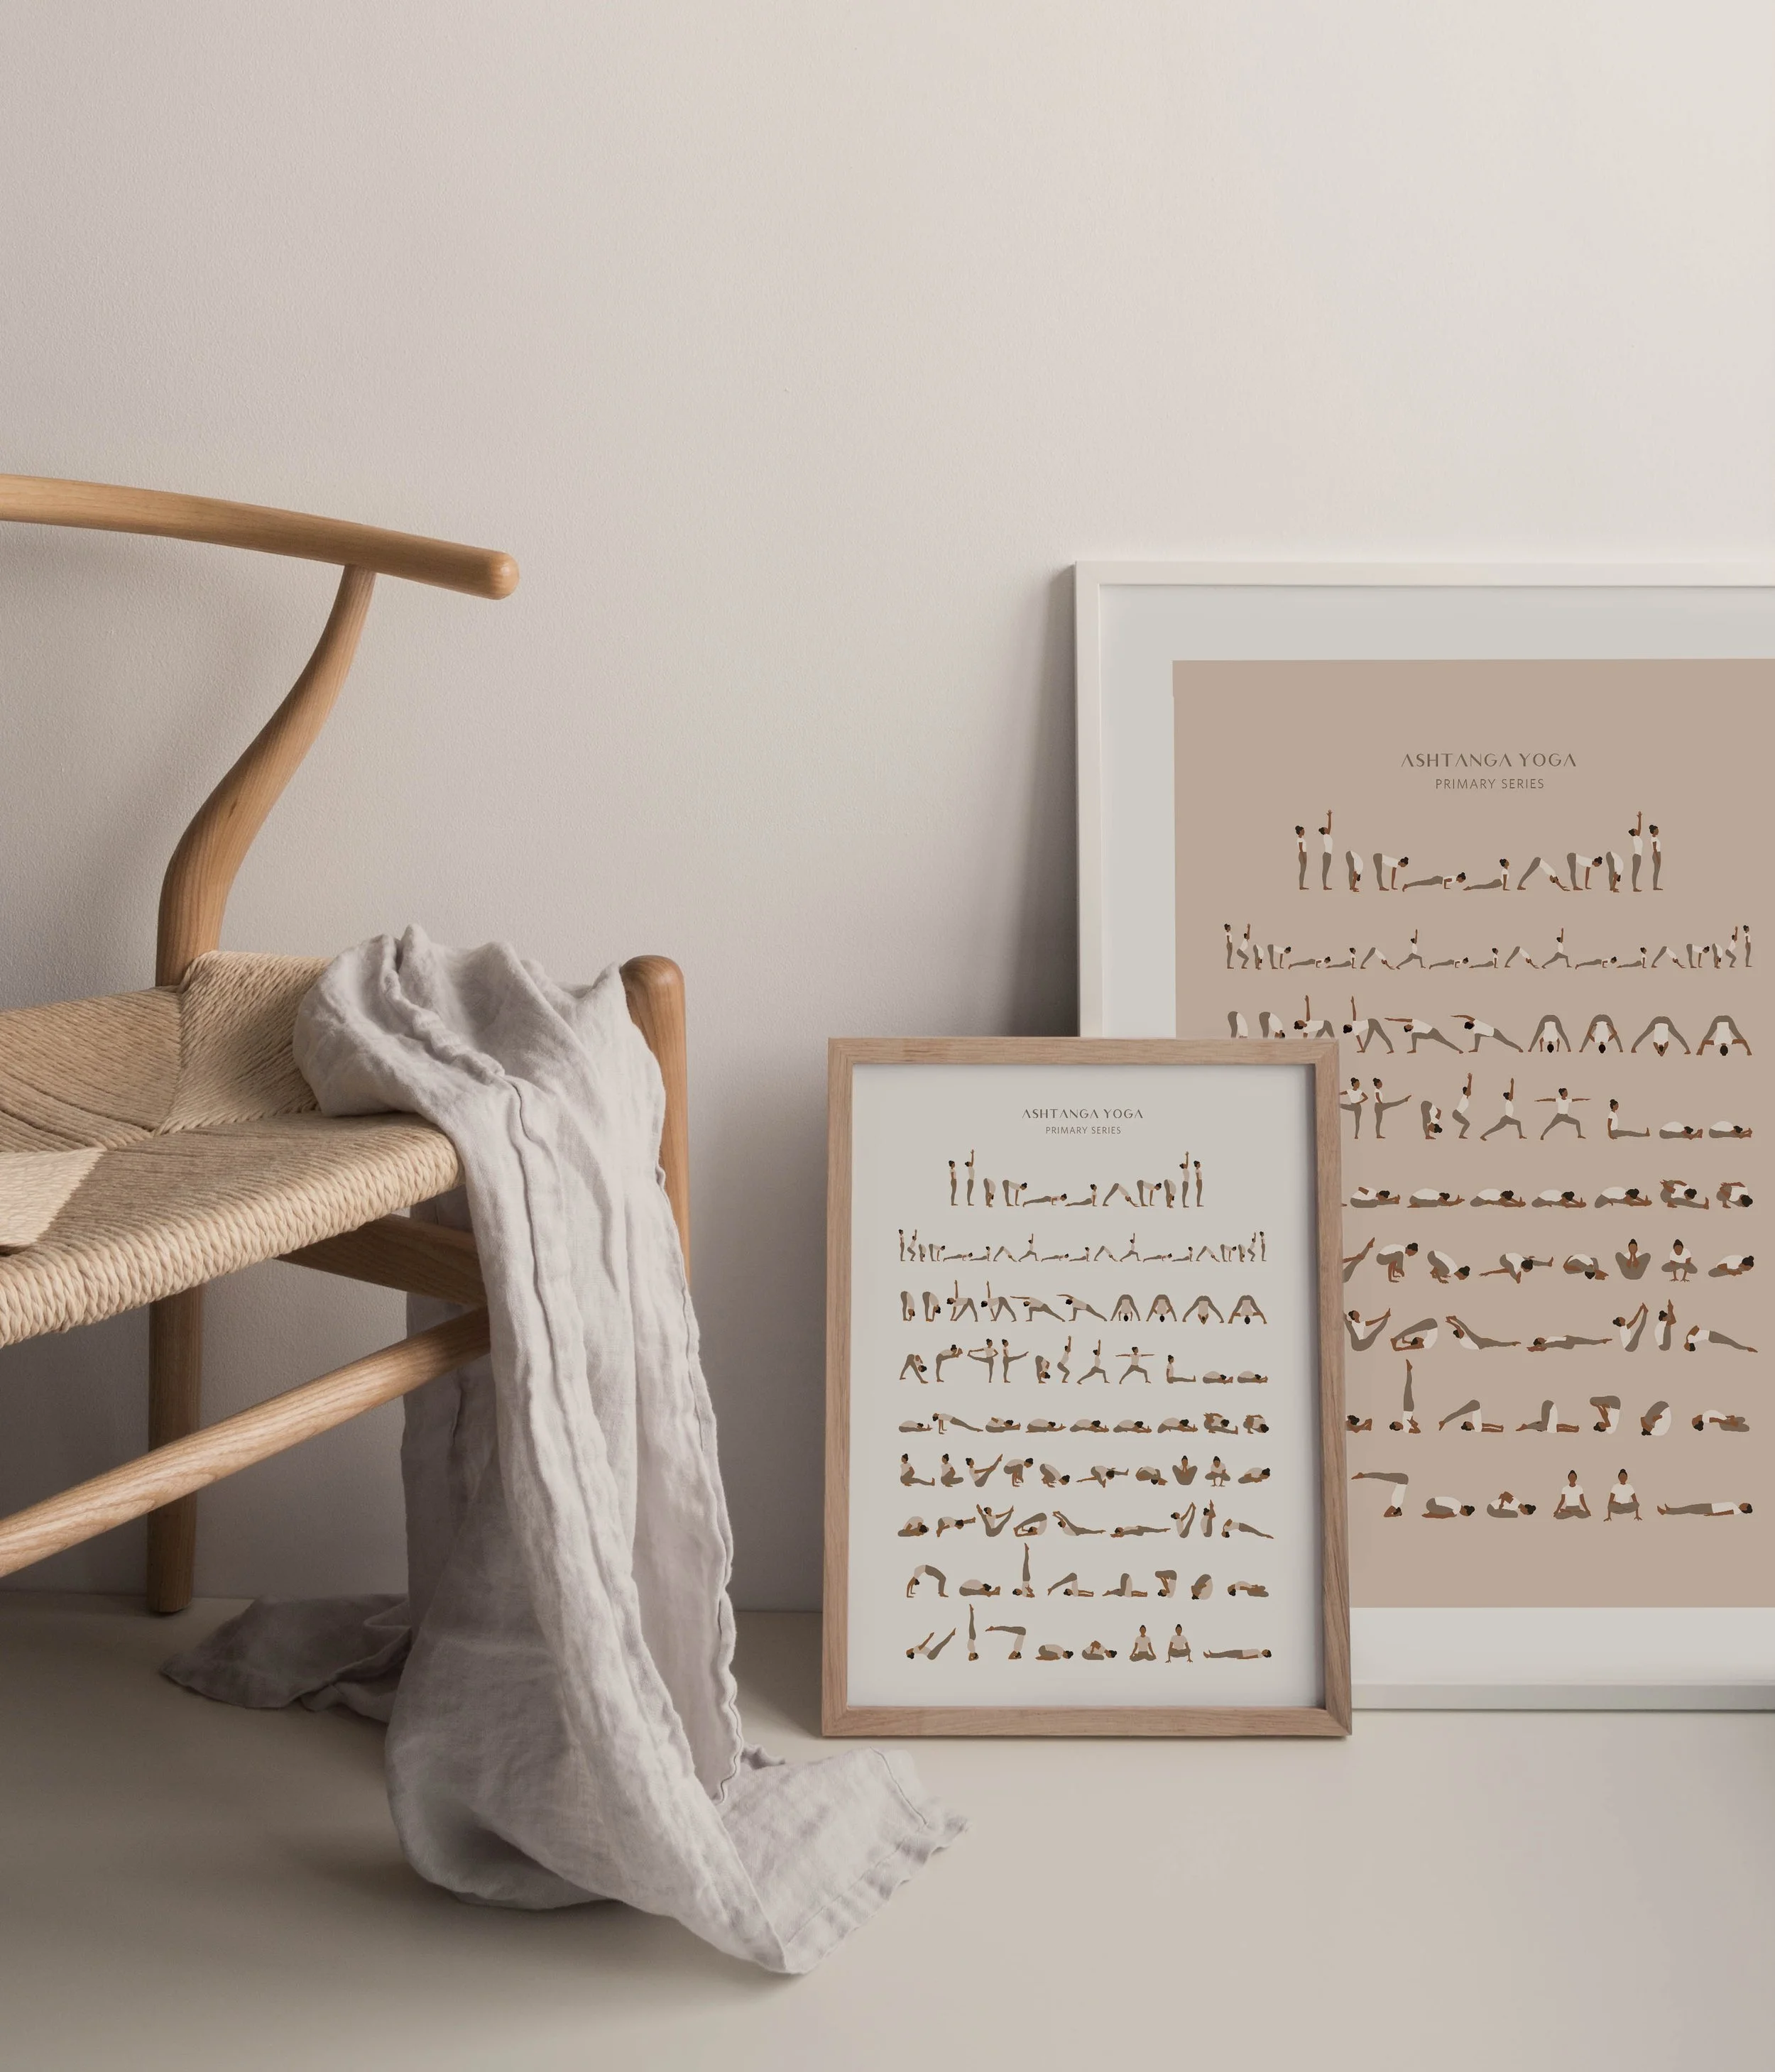 ASHTANGA YOGA
PRIMARY SERIES
ASHTANGA YOGA
PRIMARY SERIES